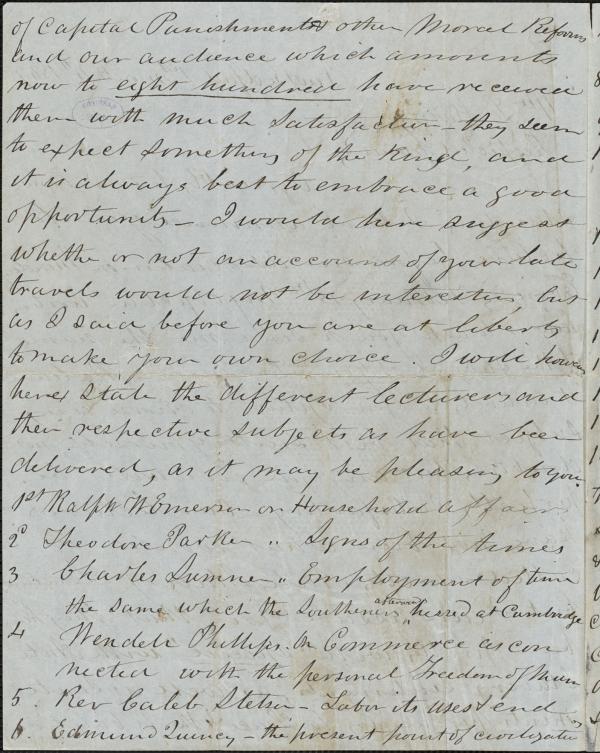 of Capital Punishment & other Moral Reforms
and our audience which amounts
now to eight hundred have received
them with much satisfaction – they seem
to expect something of the kind, and
it is always best to embrace a good
opportunity – I would here suggest
whether or not an account of your late
travels would not be interesting, but
as I said before you are at liberty
to make your own choice. I will however
here state the different lecturers and
their respective subjects as have been
delivered, as it may be pleasing to you.
1st Ralph W Emerson on Household affairs
2d Theodore Parker " Signs of the times
3 Charles Sumner " Employment of time
the same which the Southerners hissed at Cambridge
4 Wendell Phillips. On Commerce as con
nected with the personal Freedom of Man
5. Rev Caleb Stetson – Labor its uses & end
6. Edmund Quincy – the present point of civilization